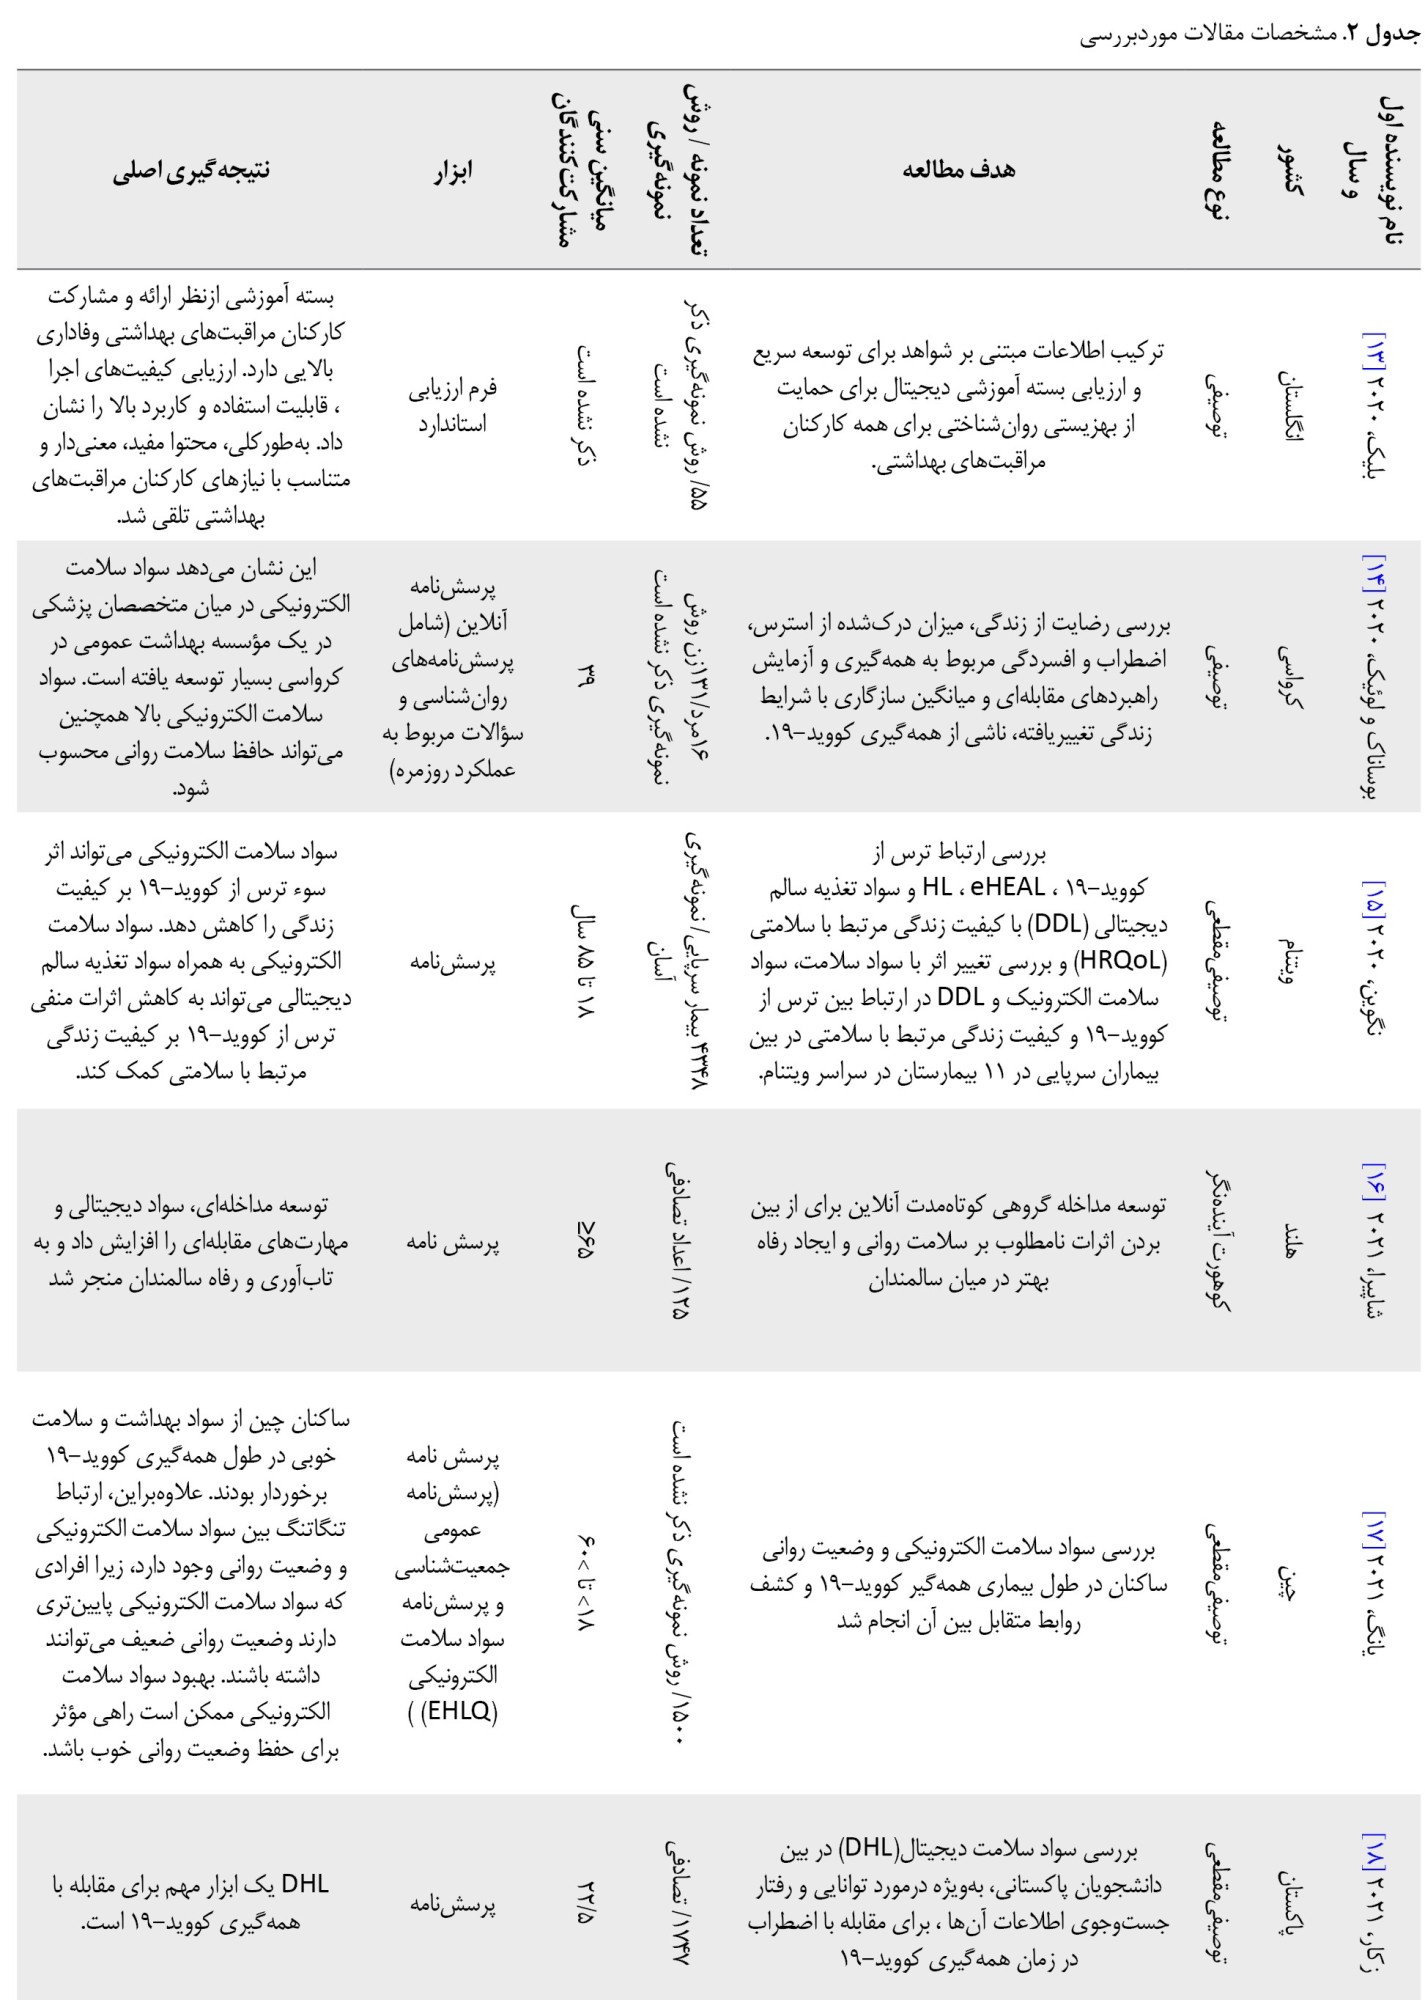 جدول ۲. مشخصات مقالات موردبررسی
نام نویسنده اول
و سال
کشور
نوع مطالعه
هدف مطالعه
تعداد نمونه / روش
نمونه‌گیری
میانگین سنی
مشارکت‌کنندگان
ابزار
نتیجه‌گیری اصلی
بلیک، ۲۰۲۰ [۱۳]
انگلستان
توصیفی
ترکیب اطلاعات مبتنی بر شواهد برای توسعه سریع
و ارزیابی بسته آموزشی دیجیتال برای حمایت
از بهزیستی روان‌شناختی برای همه کارکنان
مراقبت‌های بهداشتی.
۵۵/ روش نمونه‌گیری ذکر
نشده است
ذکر نشده است
فرم ارزیابی
استاندارد
بسته آموزشی ازنظر ارائه و مشارکت
کارکنان مراقبت‌های بهداشتی وفاداری
بالایی دارد. ارزیابی کیفیت‌های اجرا
، قابلیت استفاده و کاربرد بالا را نشان
داد. به‌طورکلی، محتوا مفید، معنی‌دار و
متناسب با نیازهای کارکنان مراقبت‌های
بهداشتی تلقی شد.
بوساناک و لوئیک، ۲۰۲۰ [۱۴]
کرواسی
توصیفی
بررسی رضایت از زندگی، میزان درک‌شده از استرس،
اضطراب و افسردگی مربوط به همه‌گیری و آزمایش
راهبردهای مقابله‌ای و میانگین سازگاری با شرایط
زندگی تغییریافته، ناشی از همه‌گیری کووید–۱۹.
۱۶مرد/۱۳۱زن روش
نمونه‌گیری ذکر نشده است
۳۹
پرسش‌نامه
آنلاین (شامل
پرسش‌نامه‌های
روان‌شناسی و
سؤالات مربوط به
عملکرد روزمره)
این نشان می‌دهد سواد سلامت
الکترونیکی در میان متخصصان پزشکی
در یک مؤسسه بهداشت عمومی در
کرواسی بسیار توسعه یافته است. سواد
سلامت الکترونیکی بالا همچنین
می‌تواند حافظ سلامت روانی محسوب
شود.
نگوین، ۲۰۲۰ [۱۵]
ویتنام
توصیفی‌مقطعی
بررسی ارتباط ترس از
کووید–۱۹ ، HL ، eHEAL و سواد تغذیه سالم
دیجیتالی (DDL) با کیفیت زندگی مرتبط با سلامتی
(HRQoL) و بررسی تغییر اثر با سواد سلامت، سواد
سلامت الکترونیک و DDL در ارتباط بین ترس از
کووید–۱۹ و کیفیت زندگی مرتبط با سلامتی در بین
بیماران سرپایی در ۱۱ بیمارستان در سراسر ویتنام.
۴۳۴۸ بیمار سرپایی/ نمونه‌گیری
آسان
۱۸ تا ۸۵ سال
پرسش‌نامه
سواد سلامت الکترونیکی می‌تواند اثر
سوء ترس از کووید–۱۹ بر کیفیت
زندگی را کاهش دهد. سواد سلامت
الکترونیکی به همراه سواد تغذیه سالم
دیجیتالی می‌تواند به کاهش اثرات منفی
ترس از کووید–۱۹ بر کیفیت زندگی
مرتبط با سلامتی کمک کند.
شاپیرا، ۲۰۲۱ [۱۶]
هلند
کوهورت آینده‌نگر
توسعه مداخله گروهی کوتاه‌مدت آنلاین برای از بین
بردن اثرات نامطلوب بر سلامت روانی و ایجاد رفاه
بهتر در میان سالمندان
۱۲۵/ اعداد تصادفی
≥۶۵
پرسش نامه
توسعه مداخله‌ای، سواد دیجیتالی و
مهارت‌های مقابله‌ای را افزایش داد و به
تاب‌آوری و رفاه سالمندان منجر شد
یانگ، ۲۰۲۱ [۱۷]
چین
توصیفی‌مقطعی
بررسی سواد سلامت الکترونیکی و وضعیت روانی
ساکنان در طول بیماری همه‌گیر کووید–۱۹ و کشف
روابط متقابل بین آن انجام شد
۱۵۰۰/ روش نمونه‌گیری ذکر نشده است
۱۸> تا >۶۰
پرسش نامه
(پرسش‌نامه
عمومی
جمعیت‌شناسی
و پرسش‌نامه
سواد سلامت
الکترونیکی
(EHLQ) )
ساکنان چین از سواد بهداشت و سلامت
خوبی در طول همه‌گیری کووید–۱۹
برخوردار بودند. علاوه‌براین، ارتباط
تنگاتنگ بین سواد سلامت الکترونیکی
و وضعیت روانی وجود دارد، زیرا افرادی
که سواد سلامت الکترونیکی پایین‌تری
دارند وضعیت روانی ضعیف می‌توانند
داشته باشند. بهبود سواد سلامت
الکترونیکی ممکن است راهی مؤثر
برای حفظ وضعیت روانی خوب باشد.
زکار، ۲۰۲۱ [۱۸]
پاکستان
توصیفی‌مقطعی
بررسی سواد سلامت دیجیتال(DHL) در بین
دانشجویان پاکستانی، به‌ویژه درمورد توانایی و رفتار
جست‌وجوی اطلاعات آن‌ها ، برای مقابله با اضطراب
در زمان همه‌گیری کووید–۱۹
۱۷۴۷/ تصادفی
۲۲/۵
پرسش‌نامه
DHL یک ابزار مهم برای مقابله با
همه‌گیری کووید–۱۹ است.